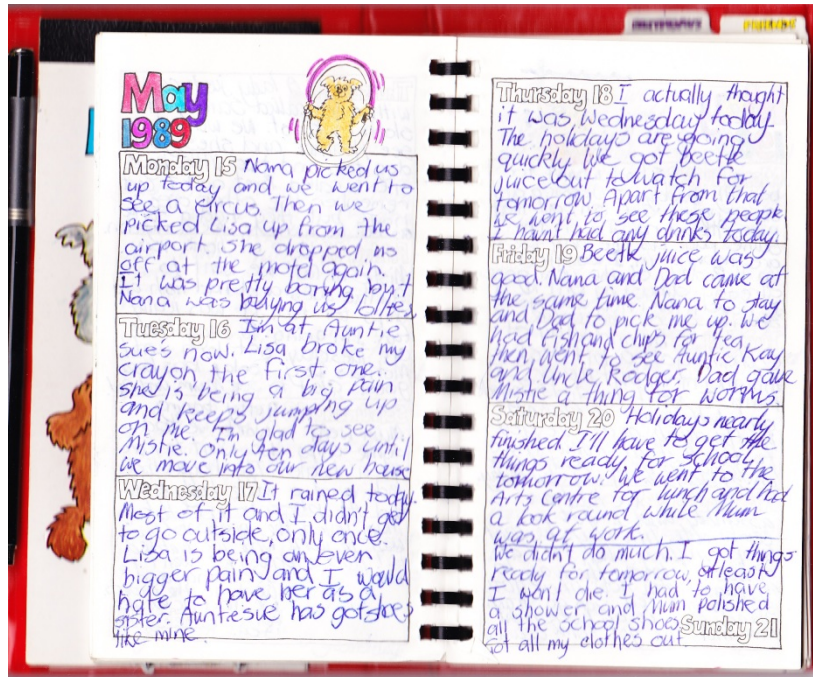 May
1989
Monday 15 Nana picked us
up today and we went to
see a circus. Then we
picked Lisa up from the
airport. She dropped us
off at the motel again.
It was pretty boring but
Nana was buying us lollies
Tuesday 16 I'm at Auntie
sue's now. Lisa broke my
crayon the first one.
she is being a big pain
and keeps jumping up
on me. I'm glad to see
Mistie. Only ten days until
we move into our new house
Wednesday 17 It rained today.
Most of it and I didn't get
to go outside, only once.
Lisa is being an even
bigger pain and I would
hate to have her as a
sister. Auntie sue has got shoes
like mine.
FRIENDS
Thursday 18 I actually thought
it was Wednesday today.
The holidays are going
quickly. We got beetle
juice out to watch for
tomorrow. Apart from that
we went to see these people
I havn't had any drinks today.
Friday 19 Beetle juice was
good. Nana and Dad came at
the same time. Nana to stay
and Dad to pick me up. We
had fish and chips for tea
then went to see Auntie Kay
and Uncle Rodger. Dad gave
Mistie a thing for worms.
Saturday 20 Holidays nearly
finished. I'll have to get the
things ready for school
tomorrow. We went to the
Arts Centre for lunch and had
a look round while Mum
was at work.
We didn't do much. I got things
ready for tomorrow, atleast
I won't die. I had to have
a shower and Mum polished
all the school shoes Sunday 21
Got all my clothes out.